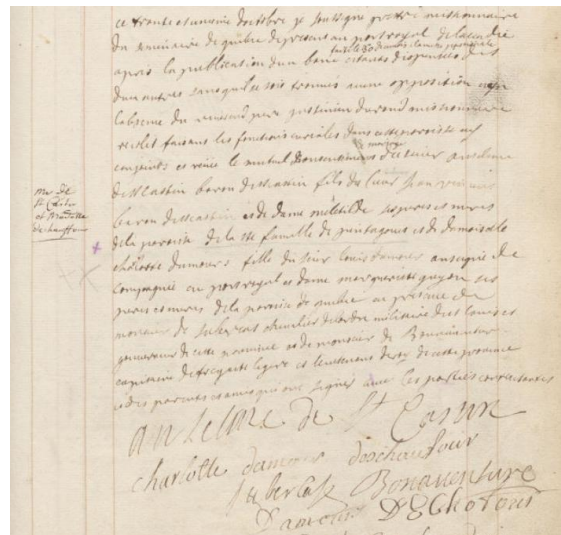 ce trente et unieme doctobre je soussigné prêtre missionnaire
du seminaire de quebec de present au port royal de lacadie
faite le 30 du mois
apres la publication dun banc estants dispensés des
deux autres sans quil se soit trouvé aucune opposition
labsence du reverend pere justinien durand missionnaire
recolet faisant les fonctions curiales dans cette paroisse ay
de mariage
conjoints et receu le mutuel consentement anselme
de st castin baron de st castin fils du sieur jean vincent
baron de st castin et de dame matilde ses peres et meres
de la paroisse de la ste famille de pentagouet et de damoiselle
charlotte damours fille du sieur louis damours enseigne de
compagnie au port royal et dame marguerite guyon ses
peres et meres de la paroisse de quebec en presence de
monsieur de subercase chevalier de lordre militaire de st louis et
gouverneur de cette province et de monsieur de Bonaventure
capitaine de fregate legere et lieutenant de roy de cette province
et des parents et amis qui ont signés avec les parties contractantes
Mr de
St Castin
et Madlle
de chauffour
anselme de St Casin
charlotte damour dechaufour
Subercase Bonaventure
Damours DEchofour